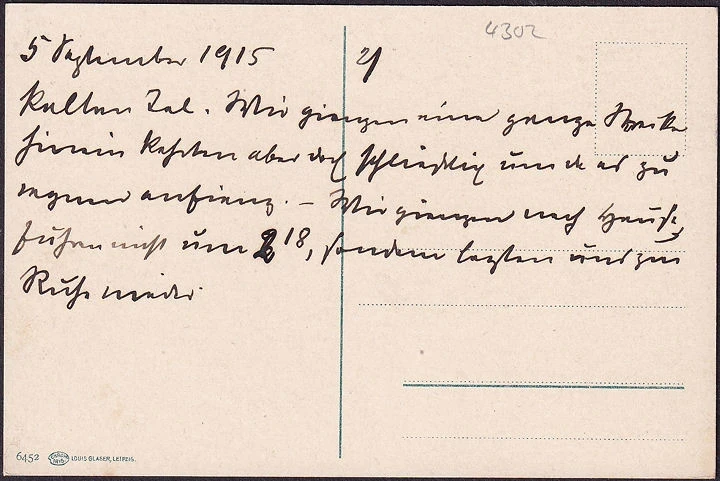 4302
5 September 1915 2/
kalten Tal. Wir giengen eine ganze Strecke
hinein kehrten aber doch schließlich um da es zu
regnen anfieng. – Wir giengen nach Hause,
fuhren nicht um 2 18, sondern legten uns zur
Ruhe nieder
6452 LOUIS GLASER, LEIPZIG.